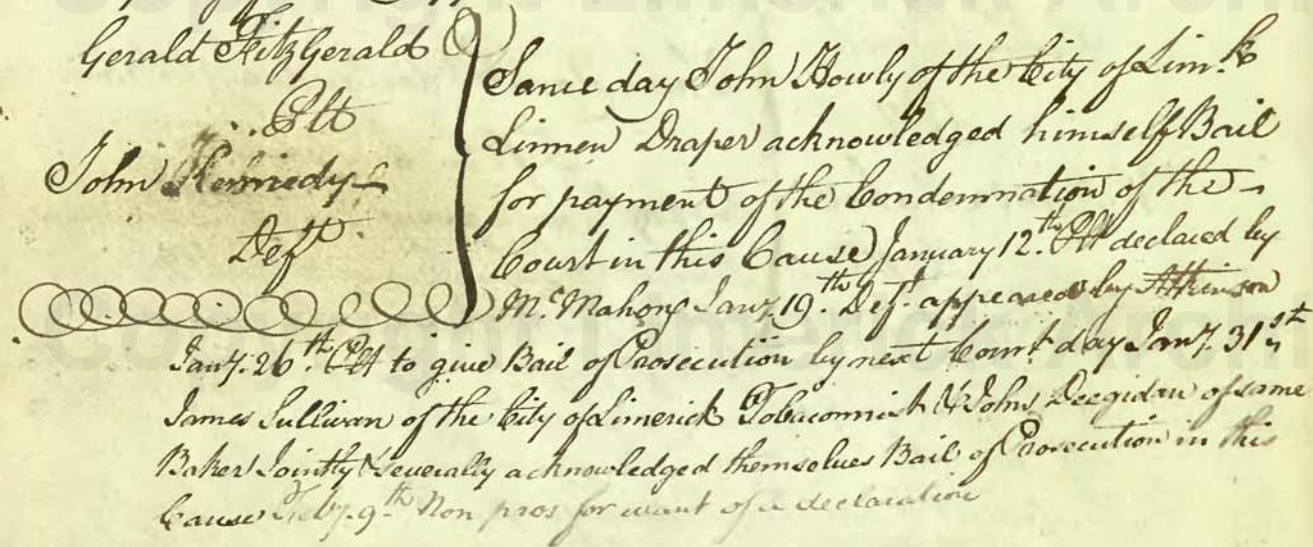 Gerald FitzGerald
Plt
John Kennedy
Deft
Same day John Howly of the City of Limk
Linnen Draper acknowledged himself Bail
for payment of the Condemnation of the
Court in this Cause January 12.th Plt declared by
Mc.Mahon Jany. 19.th Deft. appeared by Atkinson
Jany. 26.th Plt to give Bail of Prosecution by next Court day Jany. 31st
James Sullivan of the City of Limerick Tobacconist & John of same
Baker Jointly & severally acknowledged themselves Bail of Prosecution in this
Cause Feby. 9th Non pros for want of a declaration